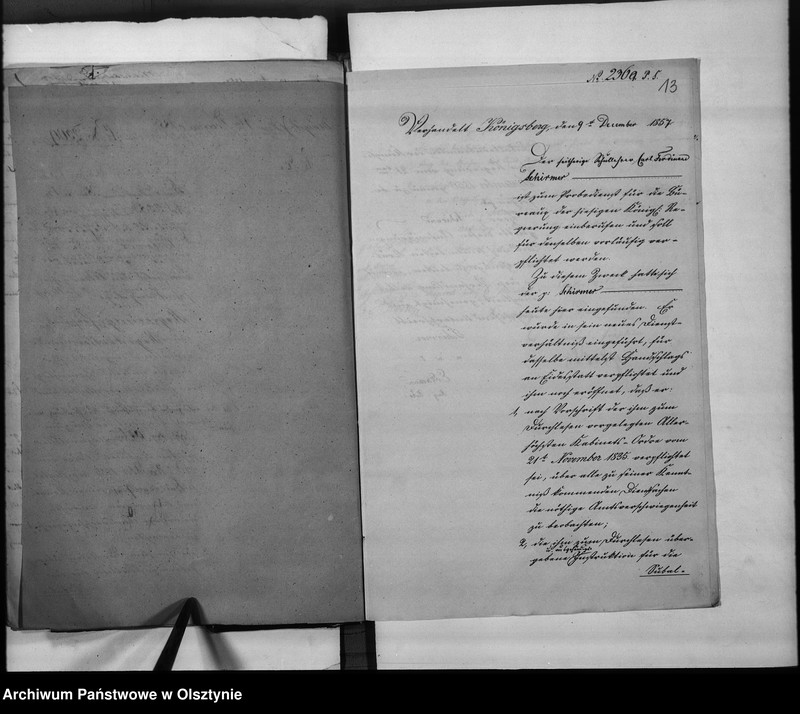 № 2369 P. S.
13
Verhandelt Königsberg, den 9t December 1857
Der seitherige Schullehrer Carl Ferdinand
Schirmer
ist zum Probedienst für die Bü-
reaux der hiesigen Königl. Re-
gierung einberufen und soll
für denselben vorläufig ver-
pflichtet werden.
Zu diesem Zweck hatte sich
der p. Schirmer
heute hier eingefunden. Er
wurde in sein neues Dienst-
verhältniß eingeführt, für
dasselbe mittelst Handschlags
an Eidesstatt verpflichtet und
ihm noch eröffnet, daß er:
1, nach Vorschrift der ihm zum
Durchlesen vorgelegten Aller-
höchsten Kabinets-Ordre vom
21t November 1835 verpflichtet
sei, über alle zu seiner Kennt-
niß kommenden Dienstsachen
die nöthige Amtsverschwiegenheit
zu beobachten;
2, die ihm zum Durchlesen über-
gebene Instruktion für die
Subal-
Archiwum Państwowe w Olsztynie